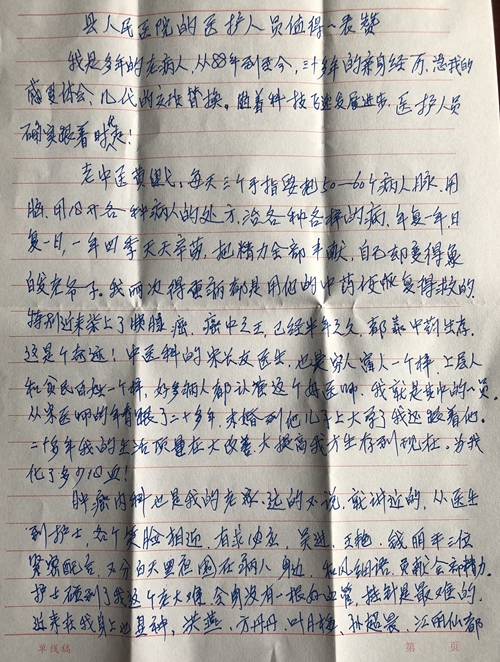 县人民医院的医护人员值得一表赞
我是多年的老病人,从88年到至今,三十多年的亲身经历,凭我的
感受体会,几代的交往替换。随着科技飞速发展进步,医护人员
确实跟着时走!
老中医黄,每天三个手指要把50—60个病人脉,用
脑,用心开各种病人的处方,治各种各样的病,年复一年,日
复一日,一年四季天天辛苦,把精力全部,自己却变得
老爷子。我两次得重病都是用他的中药恢复得救的
特别近来染上了胰腺癌,癌中之王,已经半年之久,都靠中药生存,
这是个奇迹!中医科的宋长友医生,也是穷人富人一个样,上层人
和贫民百姓一个样,好多病人都认准这个好医师,我就是其中的一员,
从宋医师的年青跟了二十多年,未婚到他儿子上大学了我还跟着他。
二十多年我的生活质量在大改善,大提高我才生存到现在,为我
化了多少心血!
肿瘤内科也是我的老家,远的不说,就讲近的,从医生
到护士,各个笑脸相迎,有求必应,吴迪,王艳,钱明丰三位
紧密配合,不分白天黑夜围在病人身边,和风细语,贡献全部精力。
护士碰到了我这个老大难,全身没有一根好血管,挂针是最难的,
近来在我身上,洪燕,方丹丹,叶月梅,孙超晨,江雨仙都
单线稿 第 页